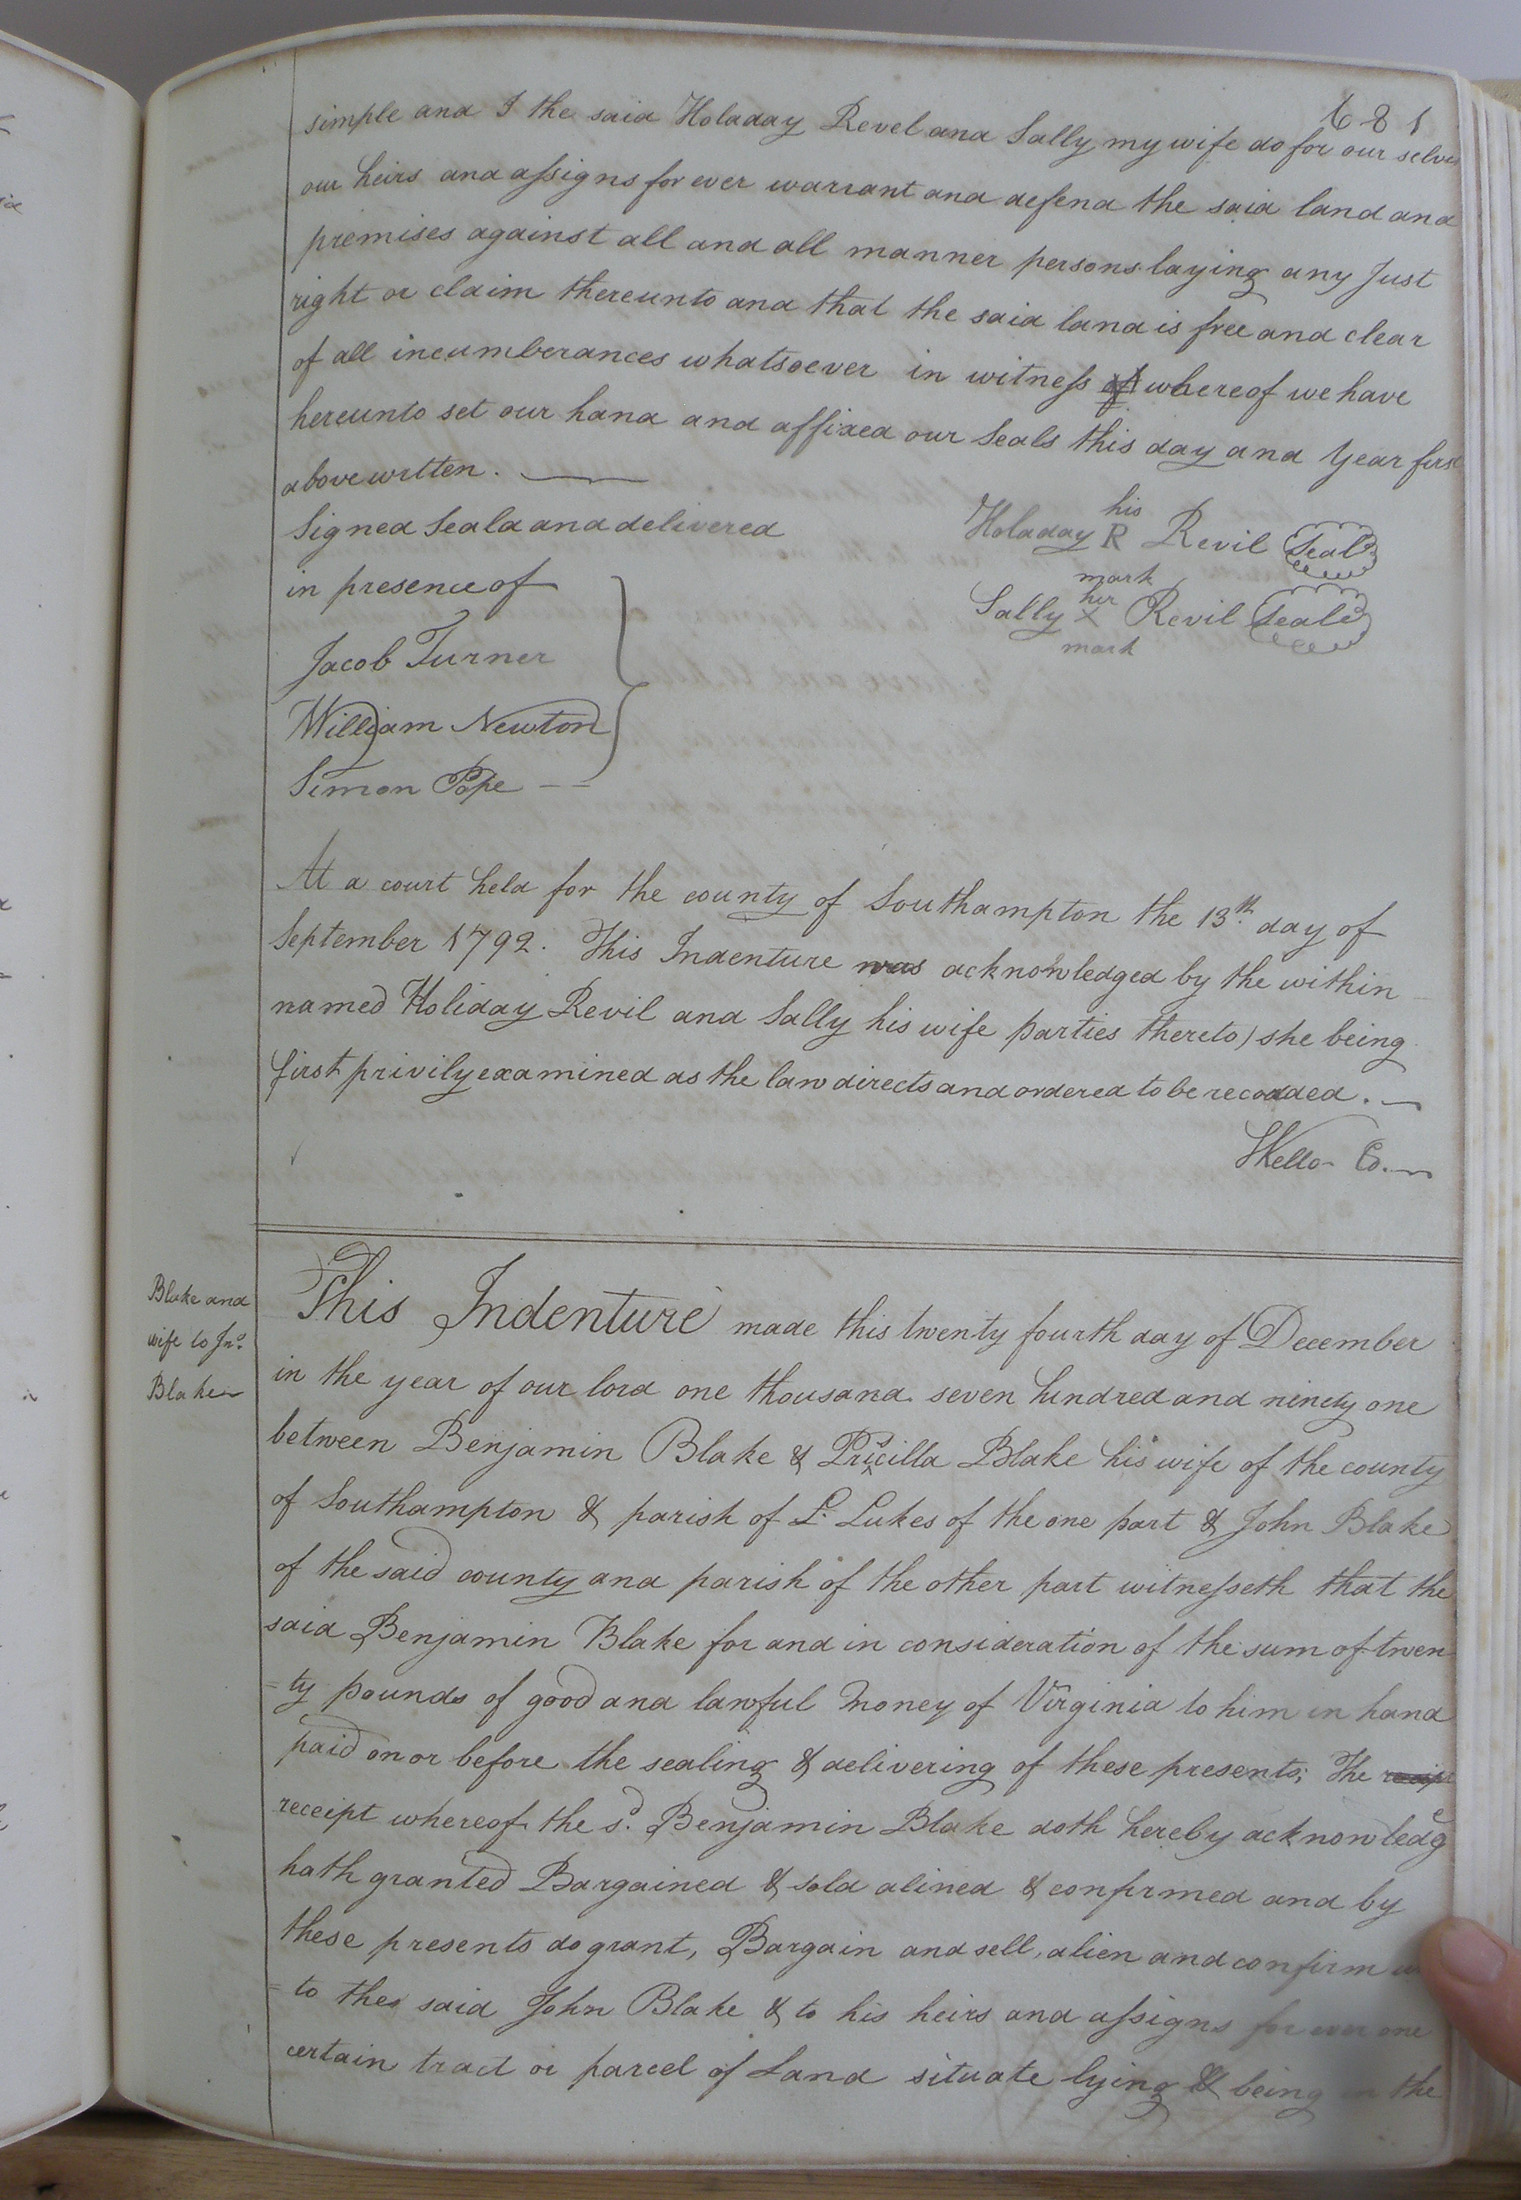 681
simple and I the said Holaday Revel and Sally my wife do for our selves
our heirs and assigns for ever warrant and defend the said land and
premises against all and all manner persons laying any Just
right or claim thereunto and that the said land is free and clear
of all incumberances whatsoever in witness of whereof we have
hereunto set our hand and affixed our Seals this day and Year first
above written.
Signed Seald and delivered
in presence of
Jacob Turner
William Newton
Simon Pope
his
Holaday R Revil Seal
mark
her
Sally x Revil Seal
mark
At a court held for the county of Southampton the 13th. day of
September 1792. This Indenture was acknowledged by the within
named Holiday Revil and Sally his wife parties thereto) she being
first privily examined as the law directs and ordered to be recorded.
Kello
Blake and
wife to Jno.
Blake
This Indenture made this twenty fourth day of December
in the year of our lord one thousand seven hundred and ninety one
between Benjamin Blake & Priscilla Blake his wife of the county
of Southampton & parish of Lukes of the one part & John Blake
of the said county and parish of the other part witnesseth that the
said Benjamin Blake for and in consideration of the sum of twen
=ty pounds of good and lawful money of Virginia to him in hand
paid on or before the sealing & delivering of these presents; The receipt
receipt whereof the sd. Benjamin Blake doth hereby acknowledge
hath granted Bargained & sold alined & confirmed and by
these presents do grant, Bargain and sell, alien and confirm
=to the said John Blake & to his heirs and assigns for ever one
certain tract or parcel of Land situate lying & being in the